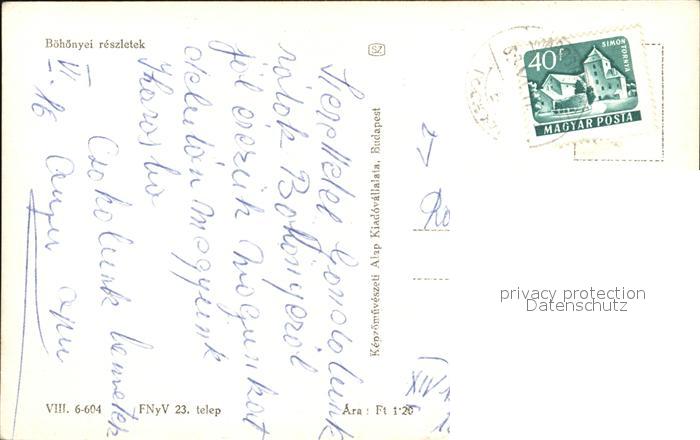 Böhönyei részletek
Szeretettel Gondolunk
rátok Böhönyeről
jól érezzük magunkat
délután megyünk
Csokolunk benneteket
VI. 16 Anyu Apu
Képzőművészeti Alap Kiadóvállalata, Budapest
SZ
40 f
SIMON TORNYA
MAGYAR POSTA
XIV
privacy protection
Datenschutz
VIII. 6-604 FNyV 23. telep Ára: Ft 1·20